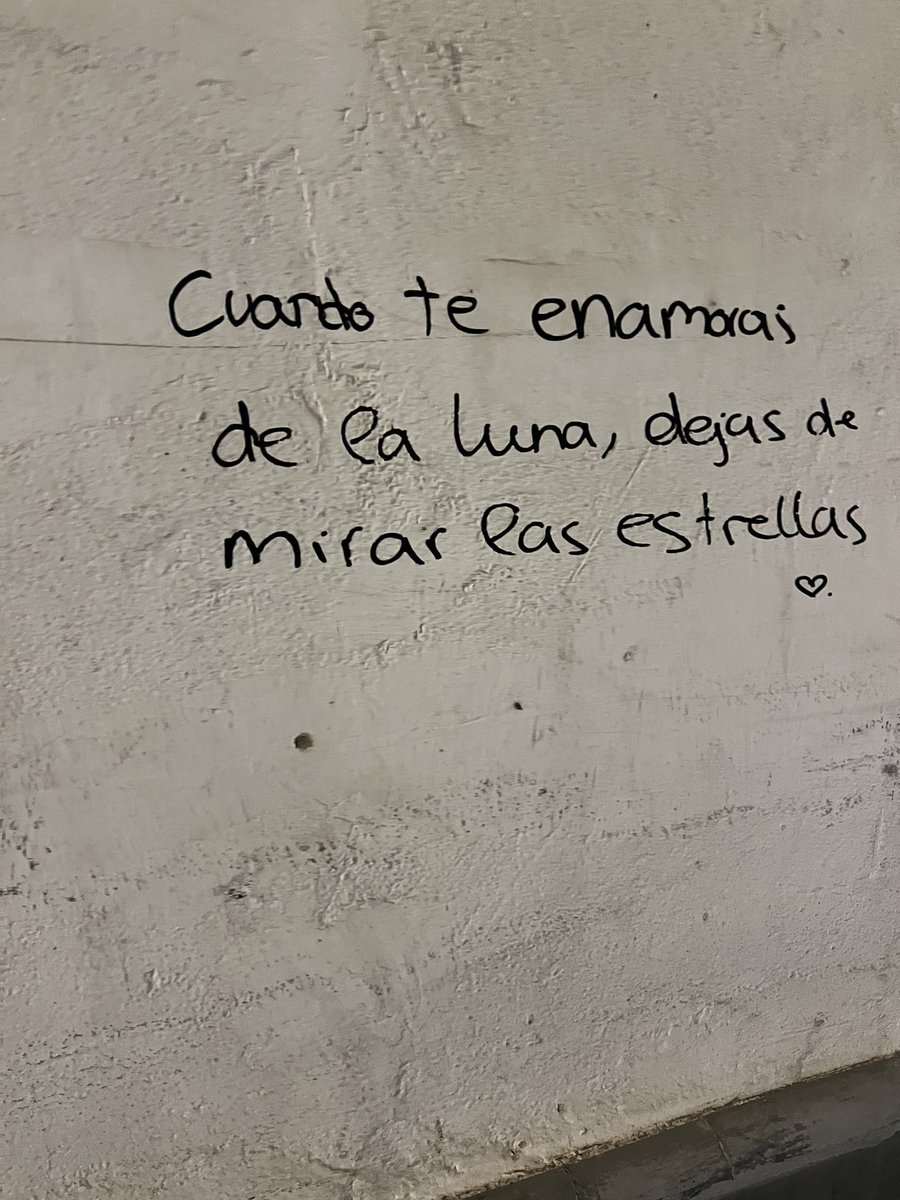 Cuando te enamoras
de la luna, dejas de
mirar las estrellas
♡.